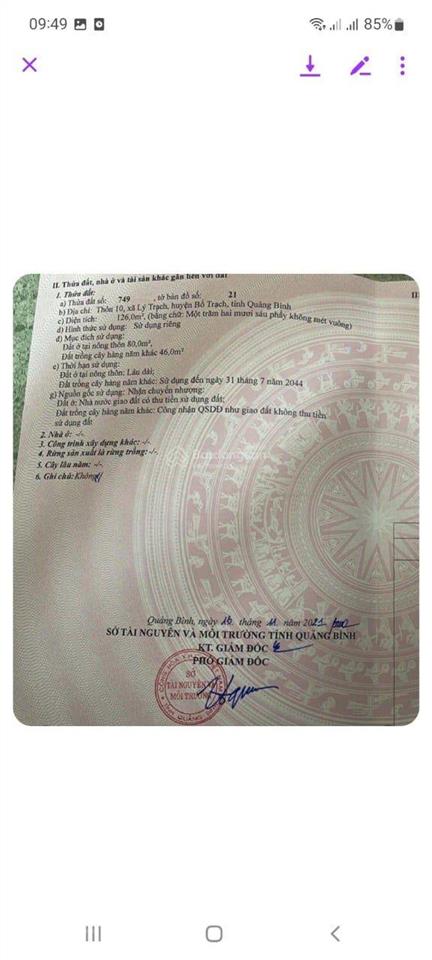 09:49
85%
II. Thửa đất, nhà ở và tài sản khác gắn liền với đất
1. Thửa đất:
a) Thửa đất số: 749 , tờ bản đồ số: 21
b) Địa chỉ: Thôn 10, xã Lý Trạch, huyện Bố Trạch, tỉnh Quảng Bình
c) Diện tích: 126,0m², (bằng chữ: Một trăm hai mươi sáu phẩy không mét vuông)
d) Hình thức sử dụng: Sử dụng riêng
đ) Mục đích sử dụng:
Đất ở tại nông thôn 80,0m²,
Đất trồng cây hàng năm khác 46,0m²
e) Thời hạn sử dụng:
Đất ở tại nông thôn: Lâu dài;
Đất trồng cây hàng năm khác: Sử dụng đến ngày 31 tháng 7 năm 2044
g) Nguồn gốc sử dụng: Nhận chuyển nhượng:
Đất ở: Nhà nước giao đất có thu tiền sử dụng đất;
Đất trồng cây hàng năm khác: Công nhận QSDĐ như giao đất không thu tiền
sử dụng đất
2. Nhà ở: -/-
3. Công trình xây dựng khác: -/-
4. Rừng sản xuất là rừng trồng: -/-.
5. Cây lâu năm: -/-
6. Ghi chú: Không
Batdongsan
Quảng Bình, ngày 10 tháng 11 năm 2021
SỞ TÀI NGUYÊN VÀ MÔI TRƯỜNG TỈNH QUẢNG BÌNH
KT. GIÁM ĐỐC
PHÓ GIÁM ĐỐC
SỞ
TÀI NGUYÊN VÀ
MÔI TRƯỜNG